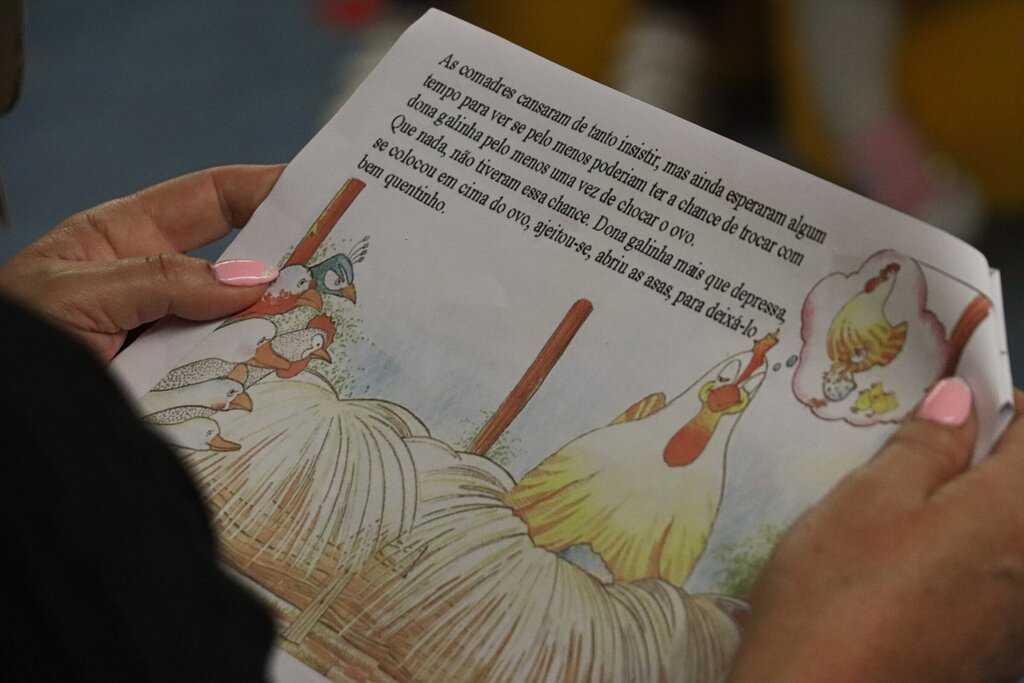 As comadres cansaram de tanto insistir, mas ainda esperaram algum
tempo para ver se pelo menos poderiam ter a chance de trocar com
dona galinha pelo menos uma vez de chocar o ovo.
Que nada, não tiveram essa chance. Dona galinha mais que depressa,
se colocou em cima do ovo, ajeitou-se, abriu as asas, para deixá-lo
bem quentinho.